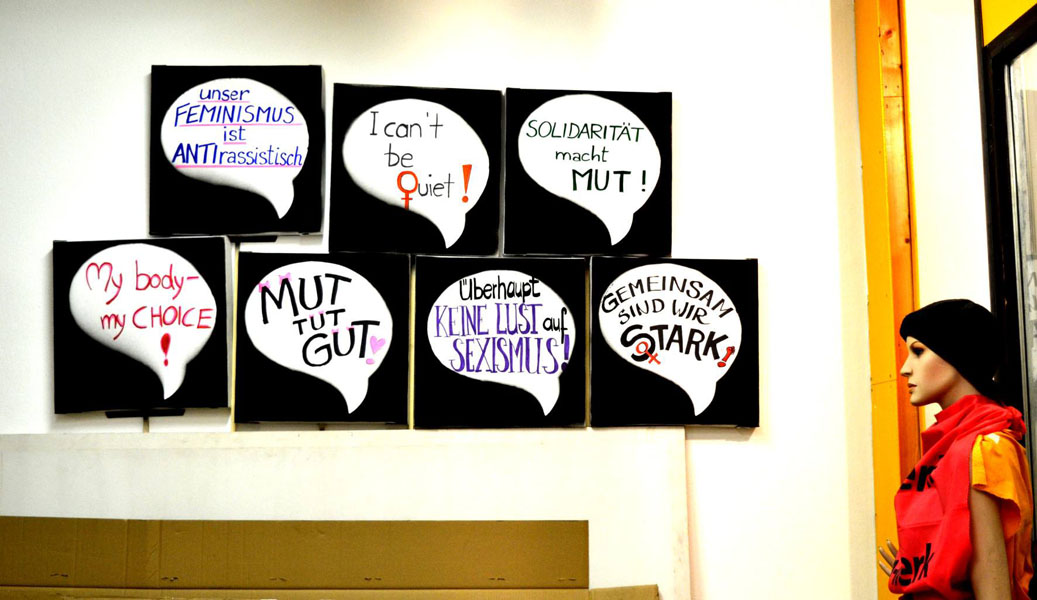 unser
FEMINISMUS
ist
ANTIrassistisch
I can't
be
Quiet!
SOLIDARITÄT
macht
MUT!
My body-
my CHOICE
!
MUT
TUT
GUT
Überhaupt
KEINE LUST auf
SEXISMUS!
GEMEINSAM
SIND WIR
STARK!